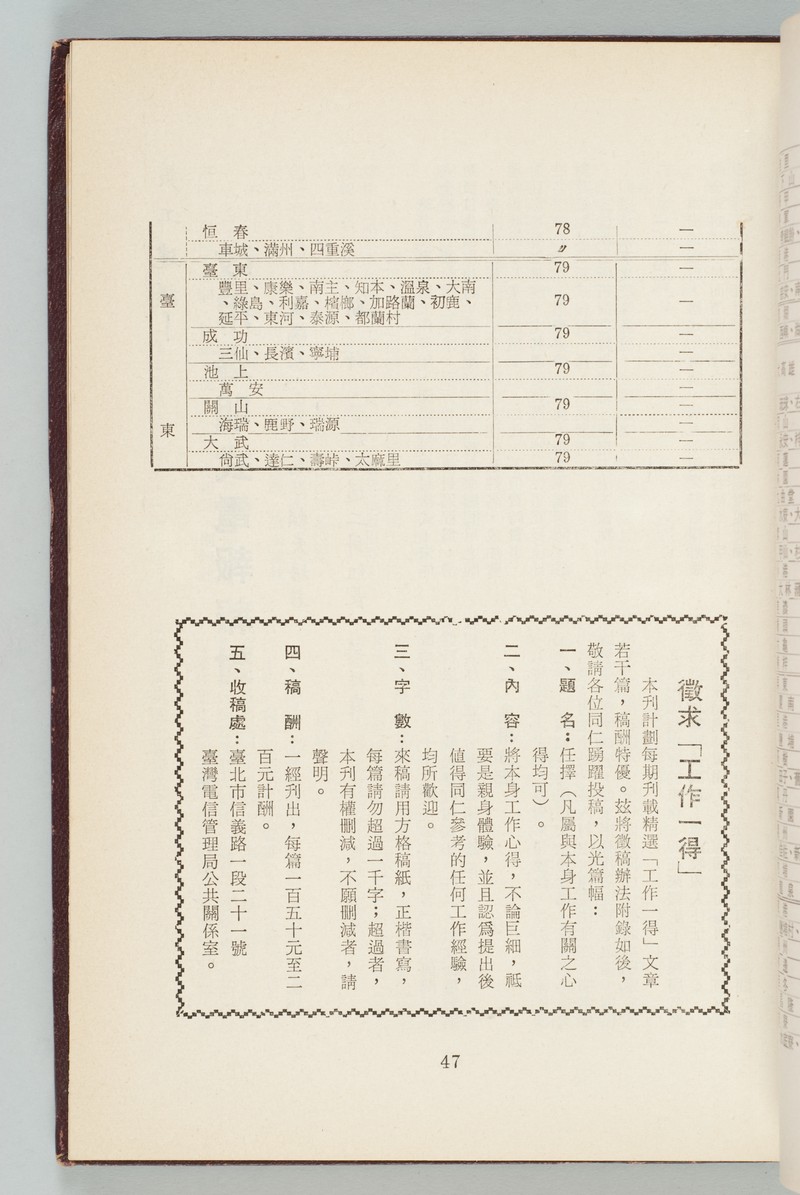 恒　春　78　—
車城、滿州、四重溪　〃　—
臺東
臺　東　79　—
豐里、康樂、南主、知本、溫泉、大南
、綠島、利嘉、檳榔、加路蘭、初鹿、　79　—
延平、東河、泰源、都蘭村
成　功　79　—
三仙、長濱、寧埔　—
池　上　79　—
萬　安　—
關　山　79　—
海瑞、鹿野、瑞源　—
大　武　79　—
尙武、達仁、壽峠、太麻里　79　—
徵求「工作一得」
本刊計劃每期刊載精選「工作一得」文章
若干篇，稿酬特優。玆將徵稿辦法附錄如後，
敬請各位同仁踴躍投稿，以光篇幅：
一、題　名：任擇（凡屬與本身工作有關之心
得均可）。
二、內　容：將本身工作心得，不論巨細，祗
要是親身體驗，並且認爲提出後
値得同仁參考的任何工作經驗，
均所歡迎。
三、字　數：來稿請用方格稿紙，正楷書寫，
每篇請勿超過一千字；超過者，
本刊有權刪減，不願刪減者，請
聲明。
四、稿　酬：一經刊出，每篇一百五十元至二
百元計酬。
五、收稿處：臺北市信義路一段二十一號
臺灣電信管理局公共關係室。
47